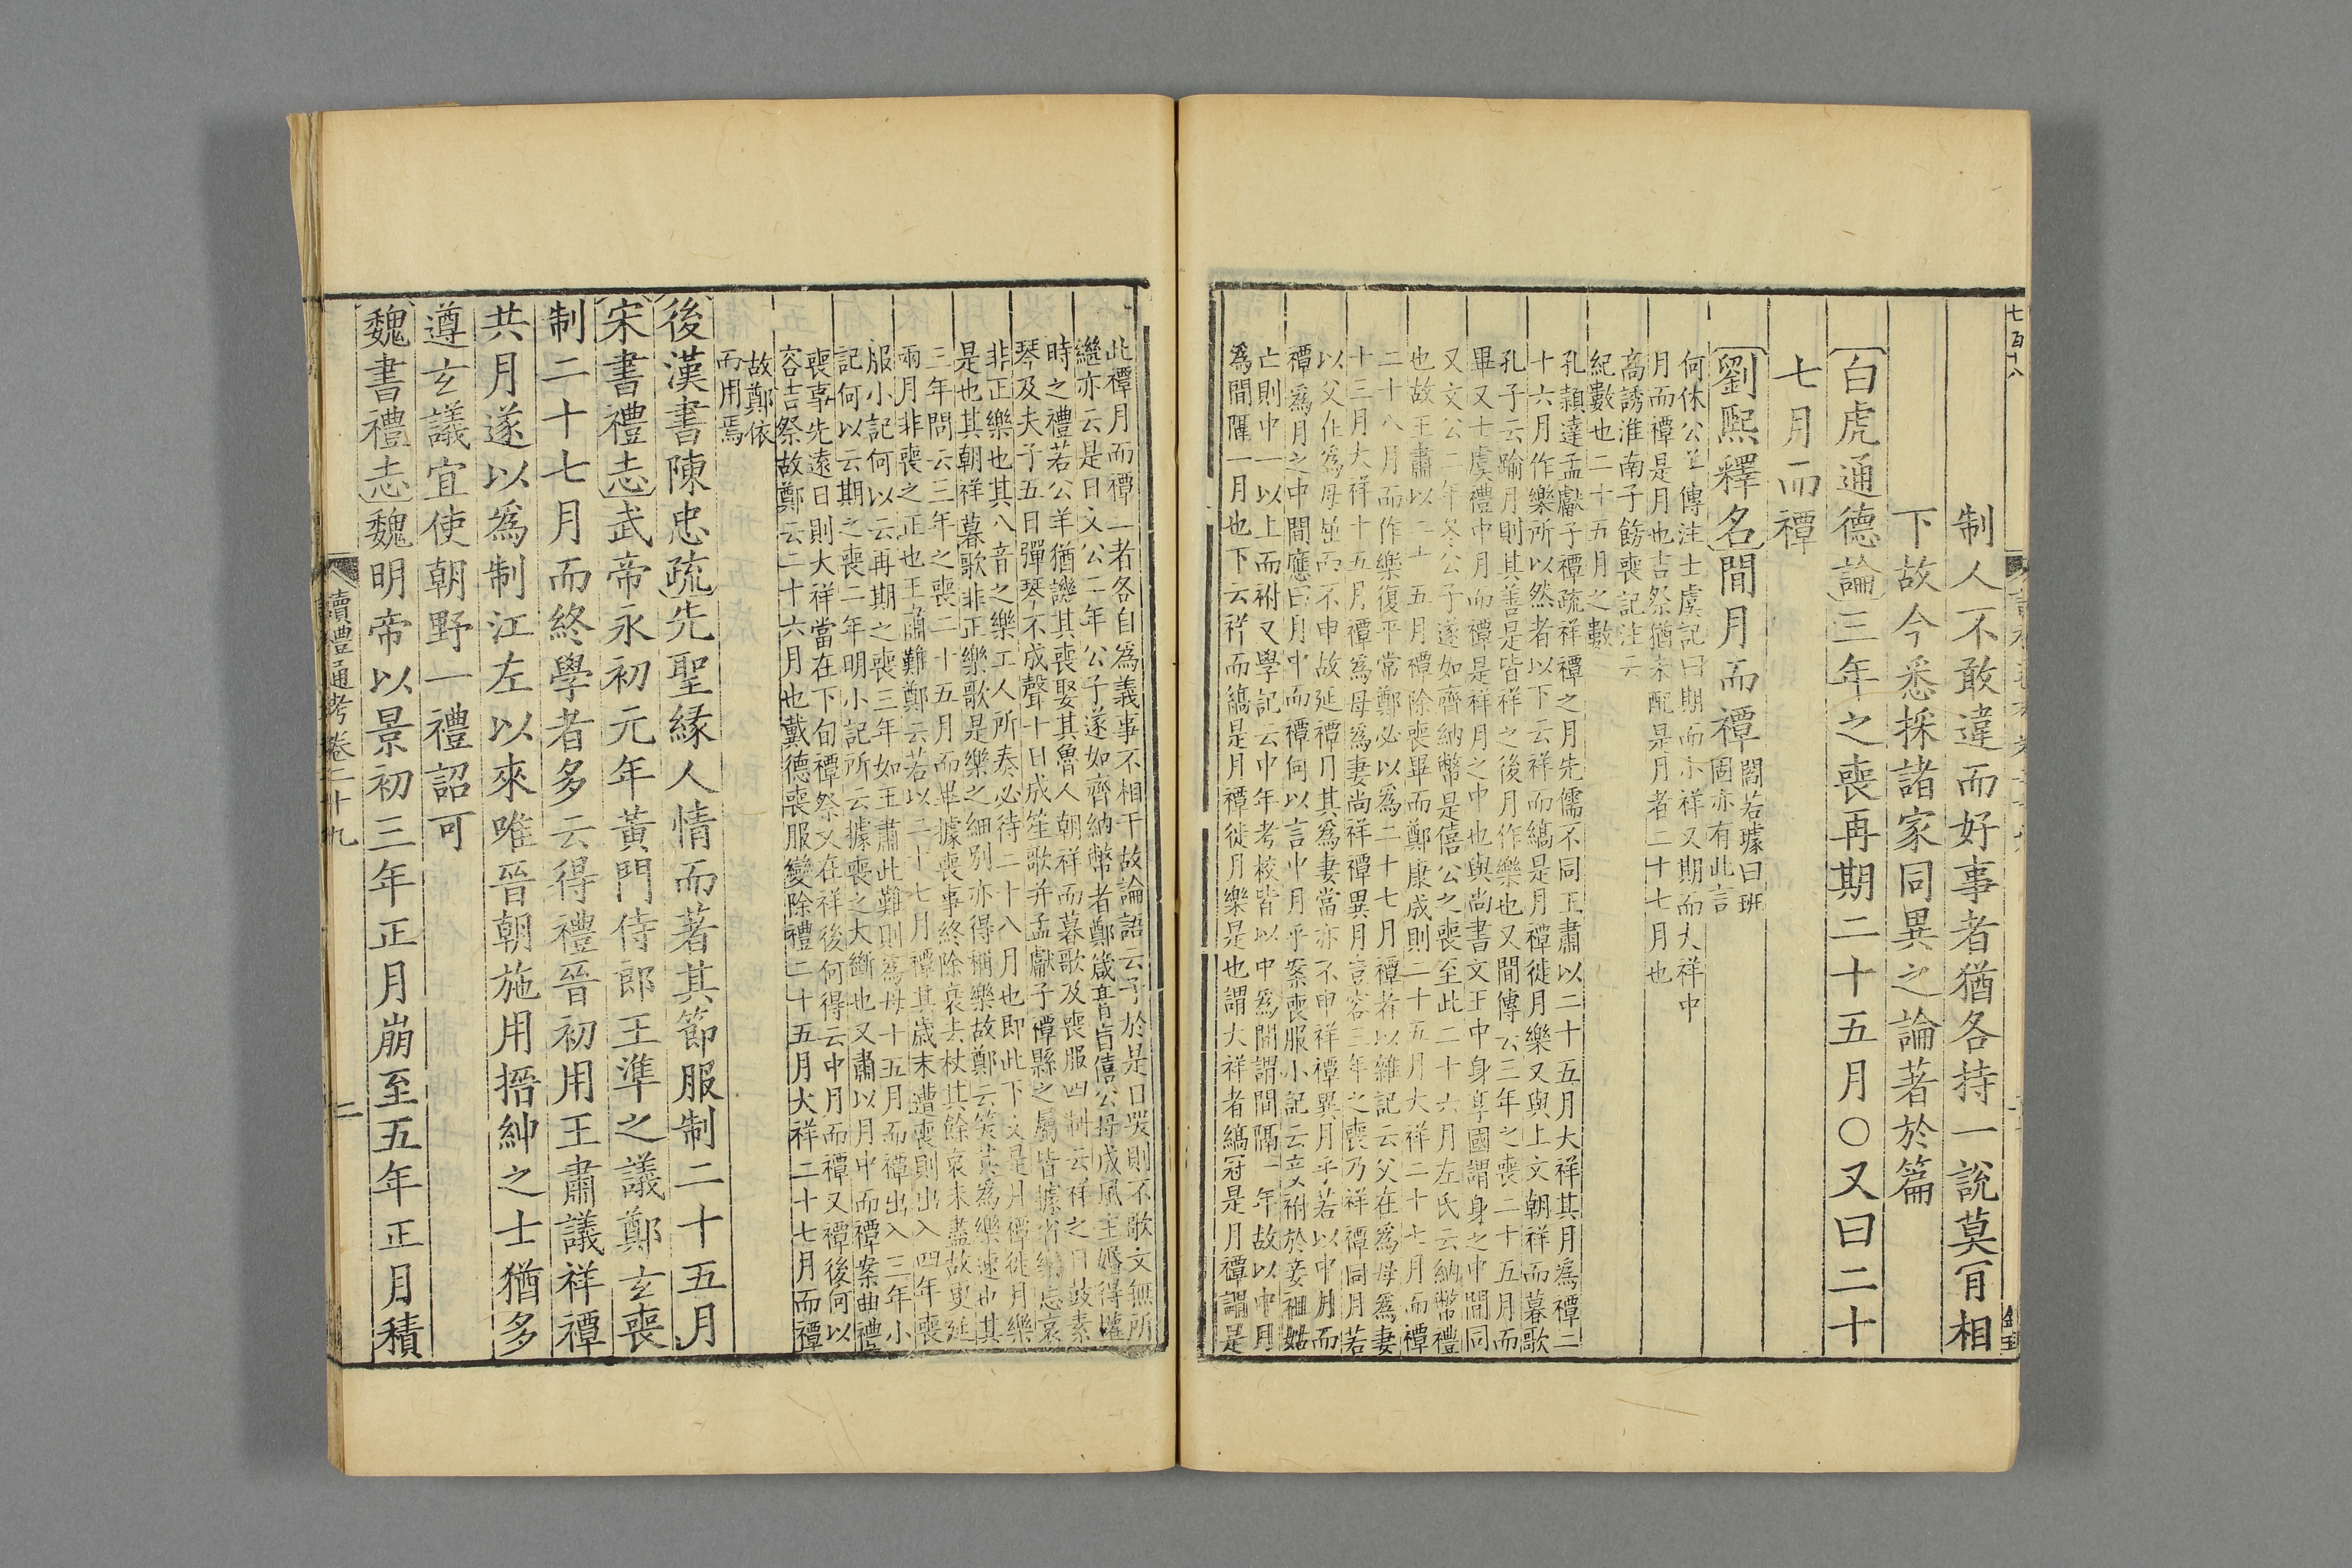 七百十八
制人不敢違而好事者猶各持一說莫肎相
下故今悉採諸家同異之論著於篇
白虎通德論三年之喪再期二十五月○又曰二十
七月而禫
劉熙釋名閒月而禫閻若璩曰班
固亦有此言
何休公羊傳注士虞記曰期而小祥又期而大祥中
月而禫是月也吉祭猶未配是月者二十七月也
高誘淮南子飭喪記注云
紀數也二十五月之數
孔穎達孟獻子禫疏祥禫之月先儒不同王肅以二十五月大祥其月為禫二
十六月作樂所以然者以下云祥而縞是月禫徙月樂又與上文朝祥而暮歌
孔子云踰月則其善是皆祥之後月作樂也又閒傳云三年之喪二十五月而
畢又士虞禮中月而禫是祥月之中也與尚書文王中身享國謂身之中閒同
又文公二年冬公子遂如齊納幣是僖公之喪至此二十六月左氏云納幣禮
也故王肅以二十五月禫除喪畢而鄭康成則二十五月大祥二十七月而禫
二十八月而作樂復平常鄭必以為二十七月禫者以雜記云父在為母為妻
十三月大祥十五月禫為母為妻尚祥禫異月豈容三年之喪乃祥禫同月若
以父在為母屈而不申故延禫月其為妻當亦不申祥禫異月乎若以中月而
禫為月之中閒應曰月中而禫何以言中月乎案喪服小記云妾祔於妾祖姑
亡則中一以上而祔又學記云中年考校皆以中為閒謂閒隔一年故以中月
為閒隔一月也下云祥而縞是月禫徙月樂是也謂大祥者縞冠是月禫謂是
此禫月而禫二者各自為義事不相干故論語云子於是日哭則不歌文無所
繼亦云是日文公二年公子遂如齊納幣者鄭箴膏肓僖公母成風主婚得權
時之禮若公羊猶譏其喪娶其魯人朝祥而暮歌及喪服四制云祥之日鼓素
琴及夫子五日彈琴不成聲十日成笙歌并孟獻子禫縣之屬皆據省樂忘哀
非正樂也其八音之樂工人所奏必待二十八月也即此下文是月禫徙月樂
是也其朝祥暮歌非正樂歌是樂之細別亦得稱樂故鄭云笑其為樂速也其
三年問云三年之喪二十五月而畢據喪事終除衰去杖其餘哀未盡故更延
兩月非喪之正也王肅難鄭云若以二十七月禫其歲末遭喪則出入四年喪
服小記何以云再期之喪三年如王肅此難則為母十五月而禫出入三年小
記何以云期之喪二年明小記所云據喪之大斷也又肅以月中而禫案曲禮
喪事先遠日則大祥當在下旬禫祭又在祥後何得云中月而禫又禫後何以
容吉祭故鄭云二十六月也戴德喪服變除禮二十五月大祥二十七月而禫
故鄭依
而用焉
後漢書陳忠疏先聖緣人情而著其節服制二十五月
宋書禮志武帝永初元年黃門侍郎王準之議鄭玄喪
制二十七月而終學者多云得禮晉初用王肅議祥禫
共月遂以為制江左以來唯晉朝施用搢紳之士猶多
遵玄議宜使朝野一禮詔可
魏書禮志魏明帝以景初三年正月崩至五年正月積
讀禮通考卷二十九
二